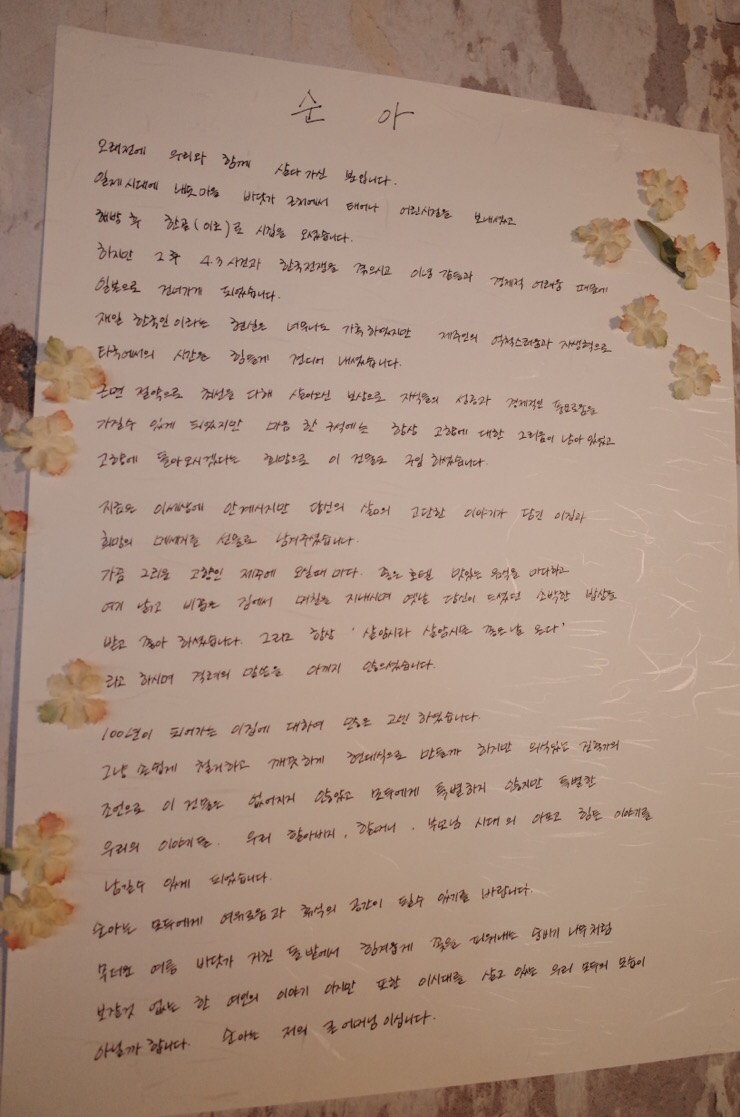 순 아
오래전에 우리와 함께 살다 가신 분입니다.
일제시대에 내도마을 바닷가 근처에서 태어나 어린시절을 보내셨고
해방 후 한골(이호)로 시집을 오셨습니다.
하지만 그 후 4.3 사건과 한국전쟁을 겪으시고 이념갈등과 경제적 어려움 때문에
일본으로 건너가게 되었습니다.
재일 한국인이라는 현실은 너무나도 가혹하였지만 제주인의 억척스러움과 자생력으로
타국에서의 시간을 힘들게 견디어 내셨습니다.
근면 절약으로 최선을 다해 살아오신 보상으로 자식들의 성공과 경제적인 풍요로움을
가질수 있게 되었지만 마음 한 구석에는 항상 고향에 대한 그리움이 남아 있었고
고향에 돌아오시겠다는 희망으로 이 건물도 구입 하셨습니다.
지금은 이세상에 안계시지만 당신의 삶의 고단한 이야기가 담긴 이집과
희망의 메세지를 선물로 남겨주셨습니다.
가끔 그리운 고향인 제주에 오실때 마다. 좋은 호텔 맛있는 음식을 마다하고
여기 낡고 비좁은 집에서 며칠을 지내시며 옛날 당신이 드셨던 소박한 밥상을
받고 좋아 하셨습니다. 그리고 항상 '살암시라 살암시면 좋은날 온다'
라고 하시며 격려의 말씀을 아끼지 않으셨습니다.
100년이 되어가는 이집에 대하여 많은 고민 하였습니다.
그냥 손쉽게 철거하고 깨끗하게 현대식으로 만들까 하지만 의식있는 건축가의
조언으로 이 건물은 없어지지 않았고 모두에게 특별하지 않지만 특별한
우리의 이야기를. 우리 할아버지, 할머니, 부모님 시대의 아프고 힘든 이야기를
남길수 있게 되었습니다.
순아는 모두에게 여유로움과 휴식의 공간이 될수 있기를 바랍니다.
무더운 여름 바닷가 거친 돌밭에서 힘겹게 꽃을 피워내는 순비기 나무처럼
보잘것 없는 한 여인의 이야기 이지만 또한 이시대를 살고 있는 우리 모두의 모습이
아닐까 합니다. 순아는 저의 큰 어머님 이십니다.